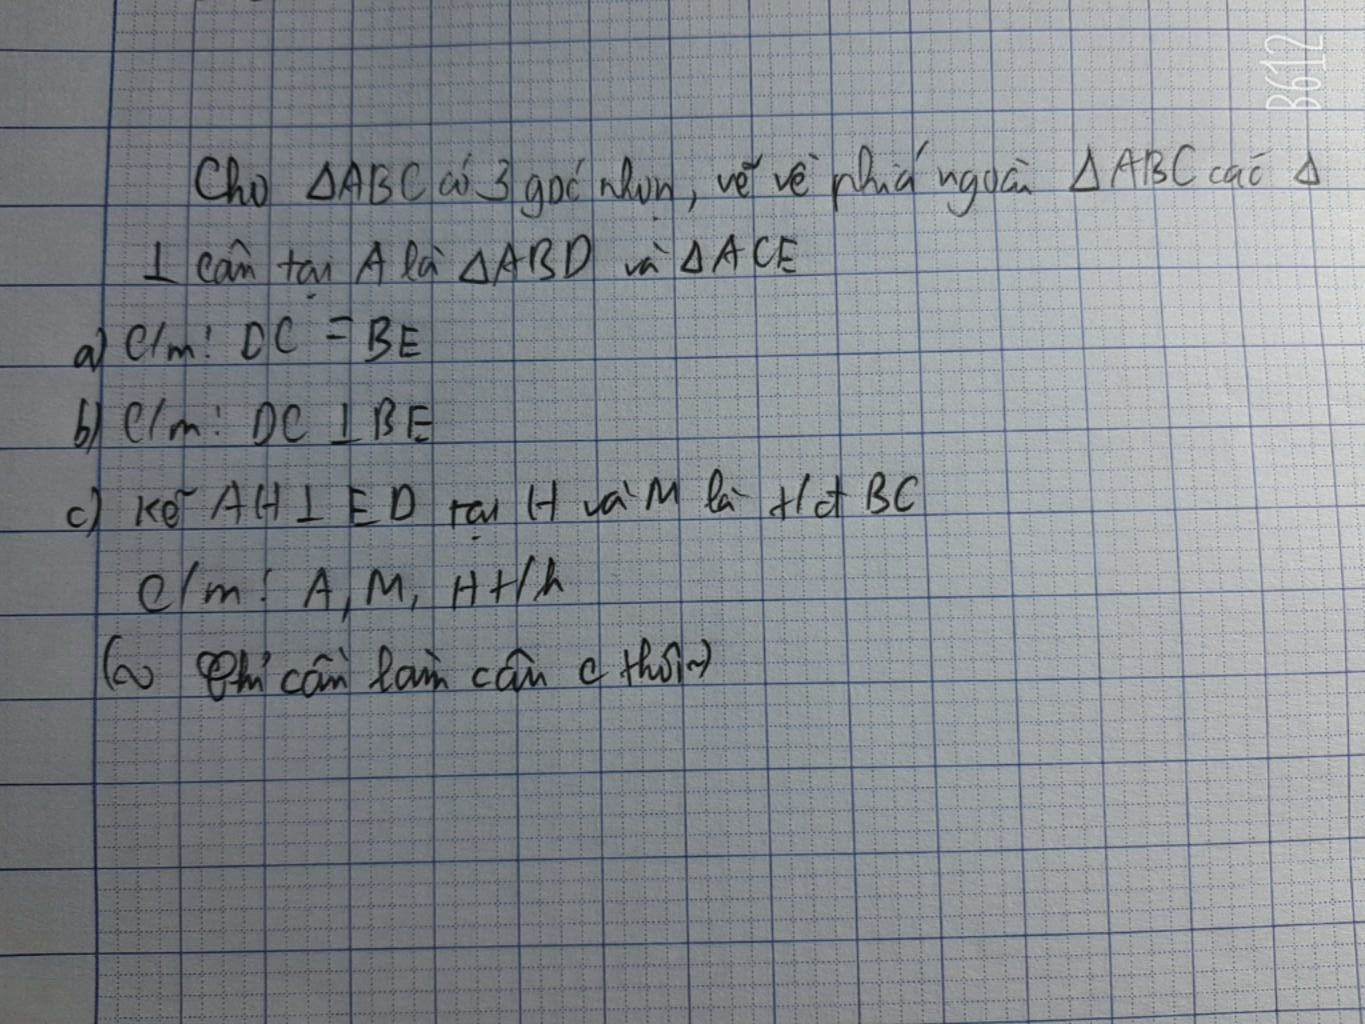 B612
Cho ΔABC có 3 góc nhọn, vẽ về phía ngoài ΔABC các Δ
⊥ cân tại A là ΔABD và ΔACE
a) C/m: DC = BE
b) C/m: DC ⊥ BE
c) Kẻ AH ⊥ ED tại H và M là t/đ BC
C/m: A, M, H t/h
(~ Chỉ cần làm câu c thôi ~)